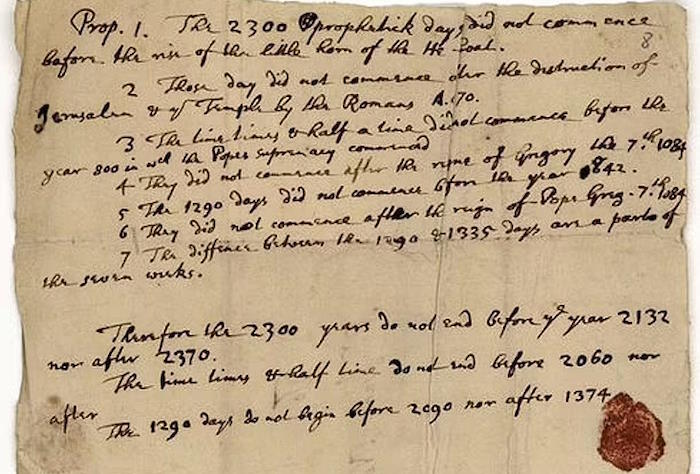 Prop. 1. The 2300 prophetick days did not commence
before the rise of the little horn of the He Goat.
8
2 Those day did not commence after the destruction of
Jerusalem & yͤ Temple by the Romans A. 70.
3 The time times & half a time did not commence before the
year 800 in wch the Popes supremacy commenced
4 They did not commence after the reigne of Gregory the 7.th 1084
5 The 1290 days did not commence before the year 842.
6 They did not commence after the reign of Pope Greg. 7.th 1084
7 The diffence between the 1290 & 1335 days are a parts of
the seven weeks.
Therefore the 2300 years do not end before yͤ year 2132
nor after 2370.
The time times & half time do not end before 2060 nor
after
The 1290 days do not begin before 2090 nor after 1374